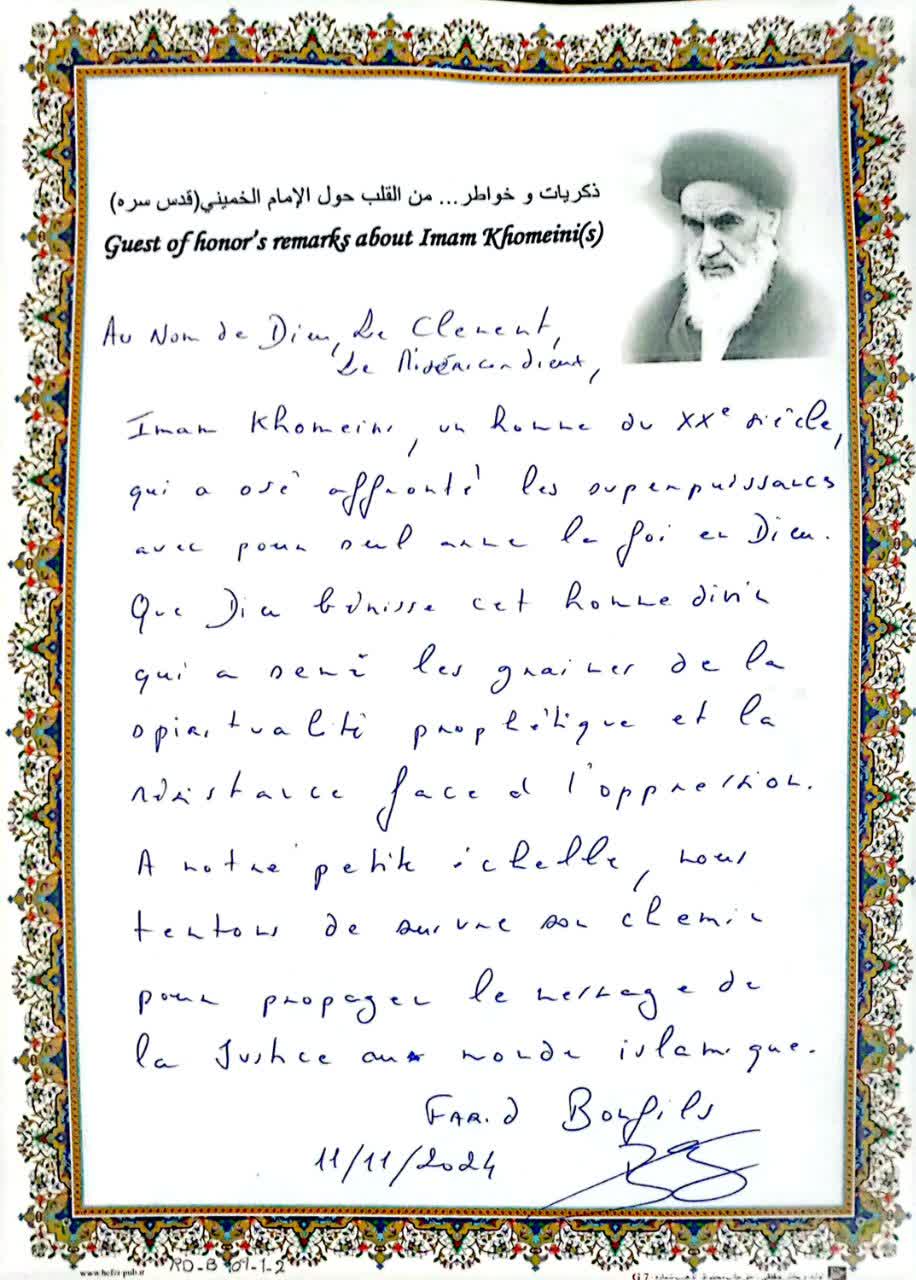 ذكريات و خواطر... من القلب حول الإمام الخميني(قدس سره)
Guest of honor's remarks about Imam Khomeini(s)
Au Nom de Dieu, Le Clément,
Le Miséricordieux,
Imam Khomeini, un homme du XXe siècle,
qui a osé affronté les superpuissances
avec pour seul arme la foi en Dieu.
Que Dieu bénisse cet homme divin
qui a semé les graines de la
spiritualité prophétique et la
résistance face à l'oppression.
A notre petite échelle, nous
tentons de suivre son chemin
pour propager le message de
la Justice au monde islamique.
Farid Bonfils
11/11/2024
www.hefix-pub.ir
RD-B 01-1-2
G 7